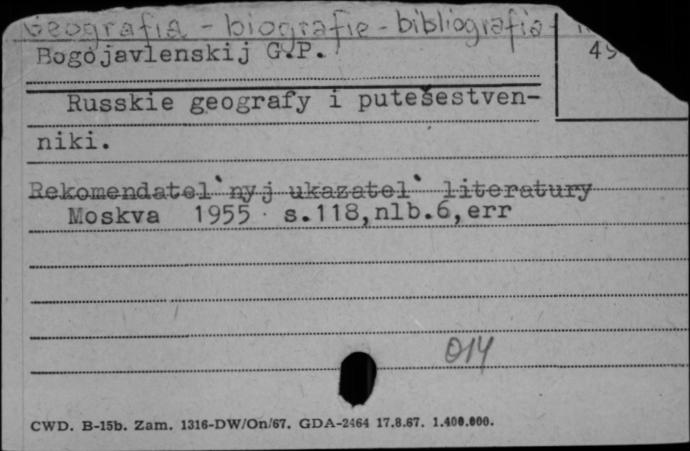 Geografia - biografie - bibliografia
Bogojavlenskij G.P.
49
Russkie geografy i putešestven-
niki.
Rekomendatel`nyj ukazatel` literatury
Moskva 1955 s.118,nlb.6,err
014
CWD. B-15b. Zam. 1316-DW/On/67. GDA-2464 17.8.67. 1.400.000.